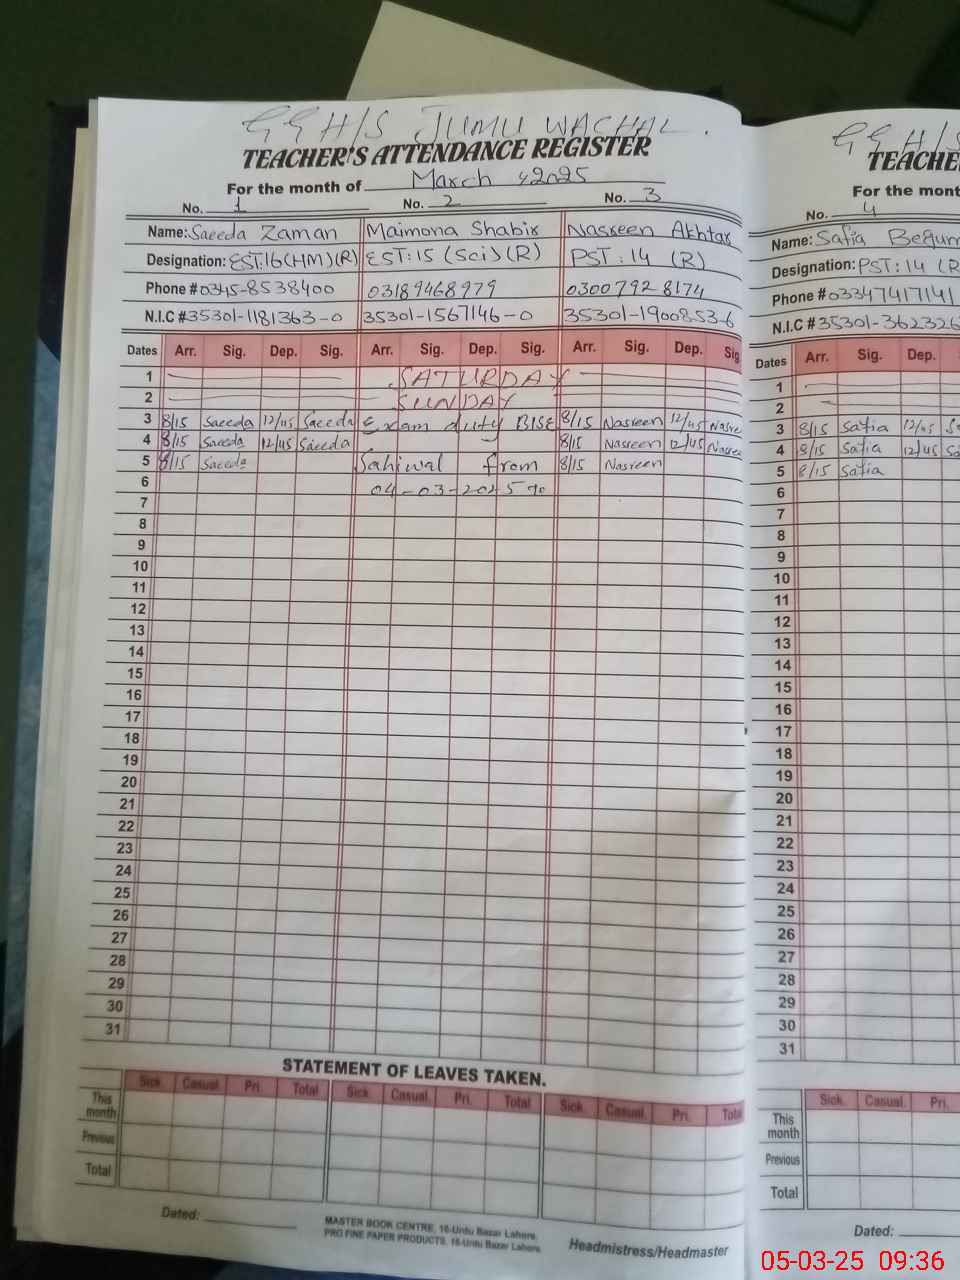 GGH/S JUMU WACHAL.
TEACHER'S ATTENDANCE REGISTER
For the month of March 2025
No. 1 No. 2 No. 3
Name: Saeeda Zaman Maimona Shabir Nasreen Akhtar
Designation: EST:16(HM)(R) EST:15 (Sci) (R) PST:14 (R)
Phone # 0345-8538400 03189468979 0300792 8174
N.I.C # 35301-1181363-0 35301-1567146-0 35301-1900853-6
Dates Arr. Sig. Dep. Sig. Arr. Sig. Dep. Sig. Arr. Sig. Dep. Sig
1 SATURDAY
2 SUNDAY
3 8/15 Saeeda 12/45 Saeeda Exam duty BISE 8/15 Nasreen 12/45 Nasre
4 8/15 Saeeda 12/45 Saeeda 8/15 Nasreen 12/45 Nasree
5 8/15 Saeeda Sahiwal from 8/15 Nasreen
6 04-03-2025
7
8
9
10
11
12
13
14
15
16
17
18
19
20
21
22
23
24
25
26
27
28
29
30
31
STATEMENT OF LEAVES TAKEN.
Sick. Casual. Pri. Total Sick. Casual. Pri. Total Sick. Casual. Pri. Total
This month
Previous
Total
Dated:
MASTER BOOK CENTRE, 16-Urdu Bazar Lahore.
PRO FINE PAPER PRODUCTS. 16-Urdu Bazar Lahore.
Headmistress/Headmaster
GGH/S
TEACHE
For the mont
No. 4
Name: Safia Begum
Designation: PST:14 (R
Phone # 03347417141
N.I.C # 35301-362326
Dates Arr. Sig. Dep.
1
2
3 8/15 Safia 12/45 S
4 8/15 Safia 12/45 Sa
5 8/15 Safia
6
7
8
9
10
11
12
13
14
15
16
17
18
19
20
21
22
23
24
25
26
27
28
29
30
31
Sick. Casual. Pri.
This month
Previous
Total
Dated:
05-03-25 09:36